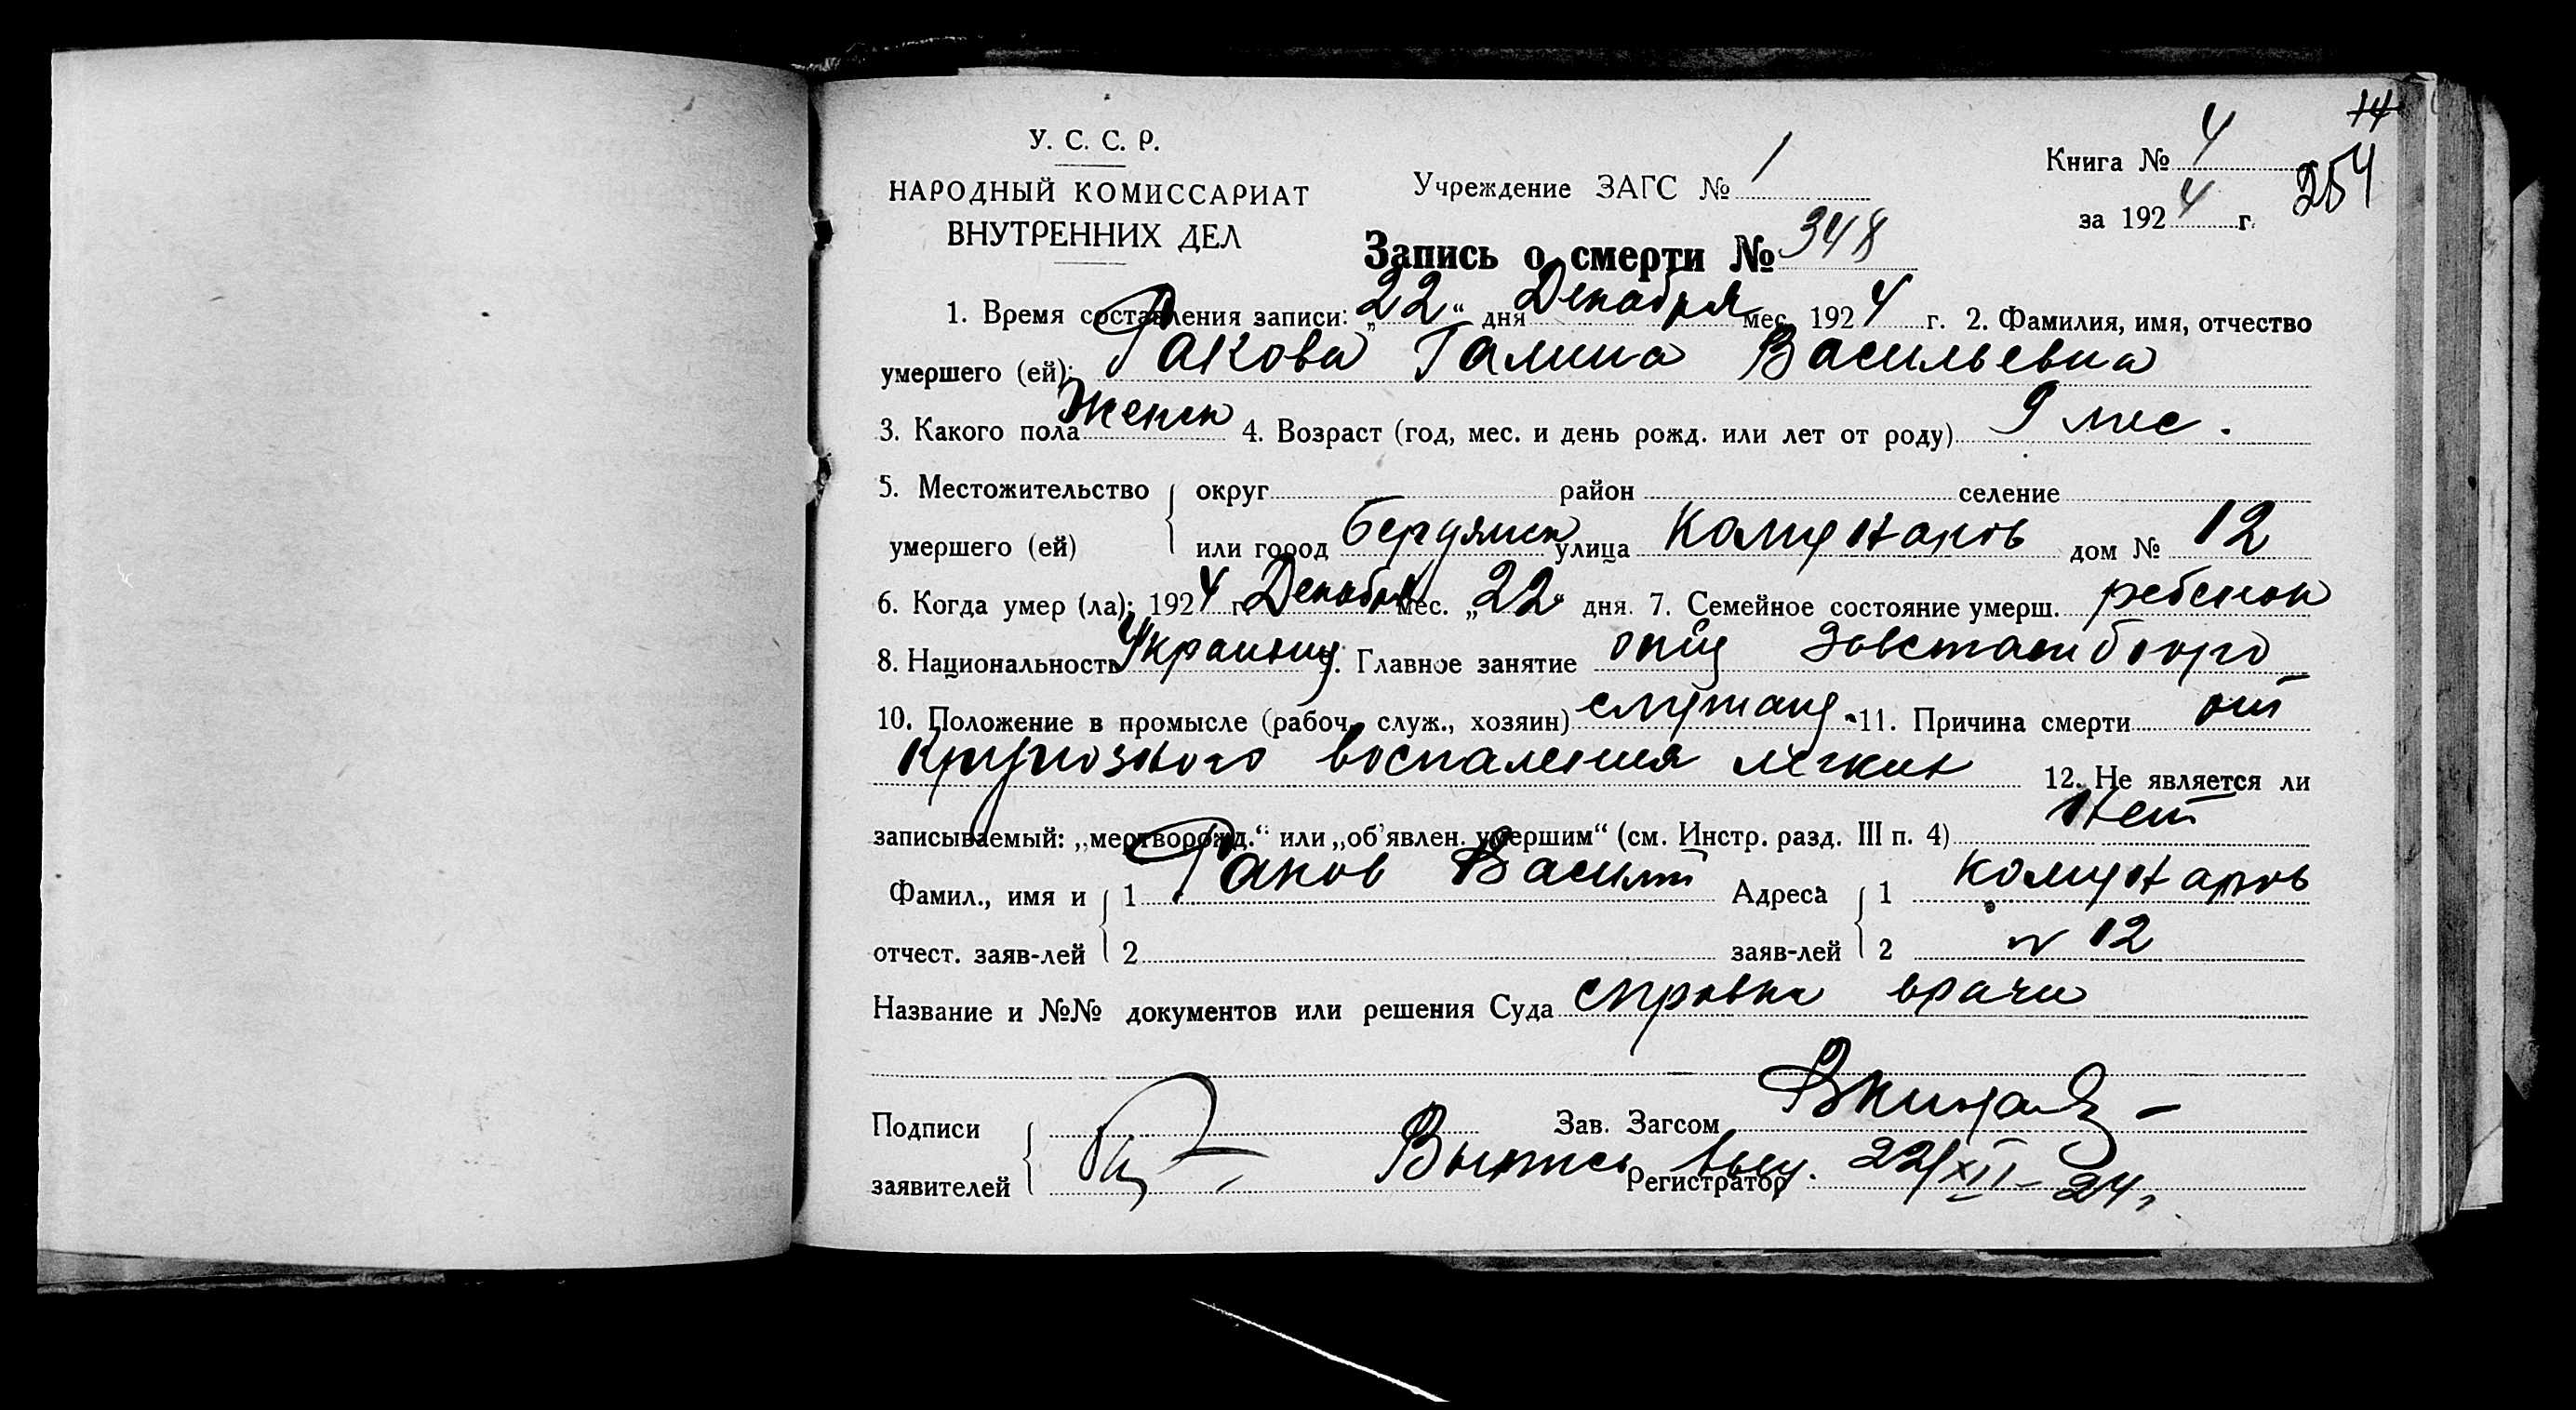 14
У. С. С. Р.
Книга № 4
254
НАРОДНЫЙ КОМИССАРИАТ
Учреждение ЗАГС № 1
за 1924 г.
ВНУТРЕННИХ ДЕЛ
Запись о смерти № 348
1. Время составления записи: „22“ дня Декабря мес. 1924 г. 2. Фамилия, имя, отчество
умершего (ей): Ракова Галина Васильевна
3. Какого пола Женск 4. Возраст (год, мес. и день рожд. или лет от роду) 9 мес.
5. Местожительство округ район селение
умершего (ей) или город Бердянск улица Комунаров дом № 12
6. Когда умер (ла): 1924 г. Декабря мес. „22“ дня. 7. Семейное состояние умерш. ребенок
8. Национальность Украинц 9. Главное занятие отец Завстатбюро
10. Положение в промысле (рабоч., служ., хозяин) служащ. 11. Причина смерти от
Крупозного воспаления легких 12. Не является ли
записываемый: „мертворожд.“ или „об'явлен. умершим“ (см. Инстр. разд. III п. 4) Нет
Фамил., имя и 1 Раков Василий Адреса 1 Комунаров
отчест. заяв-лей 2 заяв-лей 2 № 12
Название и №№ документов или решения Суда справка врача
Подписи Зав. Загсом
заявителей Выпись выд. Регистратор 22/XII-24г.